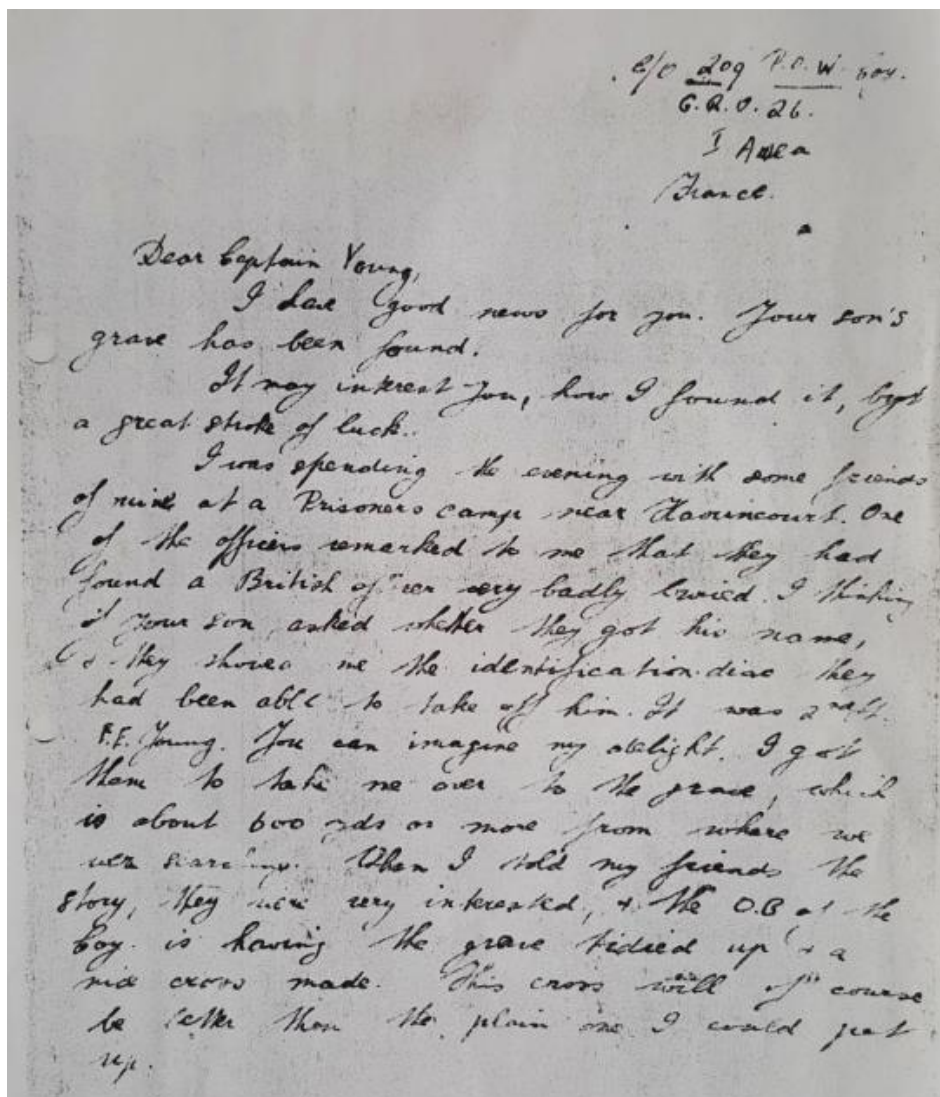 c/o 209 P.O.W. Coy.
G.R.O. 26.
I Area
France.
Dear Captain Young,
I have good news for you. Your son's
grave has been found.
It may interest you, how I found it, by
a great stroke of luck.
I was spending the evening with some friends
of mine at a Prisoners camp near Havrincourt. One
of the officers remarked to me that they had
found a British officer very badly buried. I thinking
of your son, asked whether they got his name,
& they showed me the identification-disc they
had been able to take off him. It was 2nd Lt.
F.E. Young. You can imagine my delight. I got
them to take me over to the grave, which
is about 600 yds or more from where we
were searching. When I told my friends the
story, they were very interested, & the O.C. of the
Coy. is having the grave tidied up & a
nice cross made. This cross will of course
be better than the plain one I could put
up.